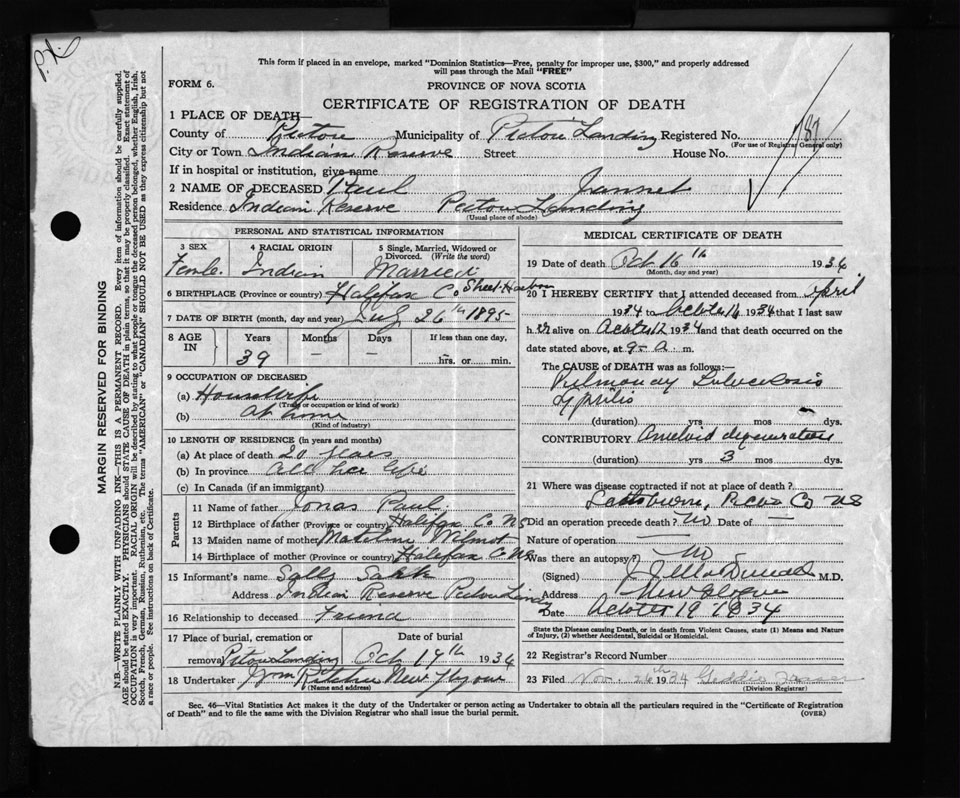 P.H.
This form if placed in an envelope, marked "Dominion Statistics—Free, penalty for improper use, $300," and properly addressed
will pass through the Mail "FREE"
FORM 6.
PROVINCE OF NOVA SCOTIA
CERTIFICATE OF REGISTRATION OF DEATH
1 PLACE OF DEATH—
County of Pictou Municipality of Pictou Landing Registered No. 187
(For use of Registrar General only)
City or Town Indian Reserve Street House No.
If in hospital or institution, give name
2 NAME OF DECEASED Paul Jannet
Residence Indian Reserve Pictou Landing
(Usual place of abode)
PERSONAL AND STATISTICAL INFORMATION
3 SEX 4 RACIAL ORIGIN 5 Single, Married, Widowed or Divorced. (Write the word)
Female Indian Married
6 BIRTHPLACE (Province or country) Halifax Co Sheet Harbour
7 DATE OF BIRTH (month, day and year) July 26th 1895
8 AGE IN Years Months Days If less than one day,
39 – – hrs. or min.
9 OCCUPATION OF DECEASED
(a) Housewife
(Trade or occupation or kind of work)
(b) at home
(Kind of industry)
10 LENGTH OF RESIDENCE (in years and months)
(a) At place of death 20 years
(b) In province all her life
(c) In Canada (if an immigrant)
Parents
11 Name of father Jonas Paul
12 Birthplace of father (Province or country) Halifax Co NS
13 Maiden name of mother Wilmot
14 Birthplace of mother (Province or country) Halifax C. NS
15 Informant's name Sally
Address Indian Reserve Pictou Landing
16 Relationship to deceased Friend
17 Place of burial, cremation or removal Date of burial
Pictou Landing Oct 17th 1934
18 Undertaker Ritchie New Glasgow
(Name and address)
MEDICAL CERTIFICATE OF DEATH
19 Date of death Oct 16th 1934
(Month, day and year)
20 I HEREBY CERTIFY that I attended deceased from April
1934 to October 16 1934 that I last saw
h er alive on October 12 1934 and that death occurred on the
date stated above, at 9- a. m.
The CAUSE OF DEATH was as follows:—
Pulmonary Tuberculosis
Syphilis
(duration) yrs mos dys.
CONTRIBUTORY Amyloid degeneration
(duration) yrs 3 mos dys.
21 Where was disease contracted if not at place of death?
Pictou Co NS
Did an operation precede death? No Date of —
Nature of operation —
Was there an autopsy? No
(Signed) M.D.
Address New Glasgow
Date October 19 1934
State the Disease causing Death, or in death from Violent Causes, state (1) Means and Nature
of Injury, (2) whether Accidental, Suicidal or Homicidal.
22 Registrar's Record Number
23 Filed Nov. 26th 1934 Geddie
(Division Registrar)
Sec. 46—Vital Statistics Act makes it the duty of the Undertaker or person acting as Undertaker to obtain all the particulars required in the "Certificate of Registration
of Death" and to file the same with the Division Registrar who shall issue the burial permit.
(OVER)
MARGIN RESERVED FOR BINDING
N.B.—WRITE PLAINLY WITH UNFADING INK—THIS IS A PERMANENT RECORD. Every item of information should be carefully supplied.
AGE should be stated EXACTLY. PHYSICIANS should STATE CAUSE OF DEATH in plain terms, so that it may be properly classified. Exact statement of
OCCUPATION is very important. RACIAL ORIGIN will be described by stating to what people or tongue the deceased person belonged, whether English, Irish,
Scotch, French, German, Russian, Ruthenian, etc. The terms "AMERICAN" or "CANADIAN" SHOULD NOT BE USED as they express citizenship but not
a race or people. See instructions on back of Certificate.